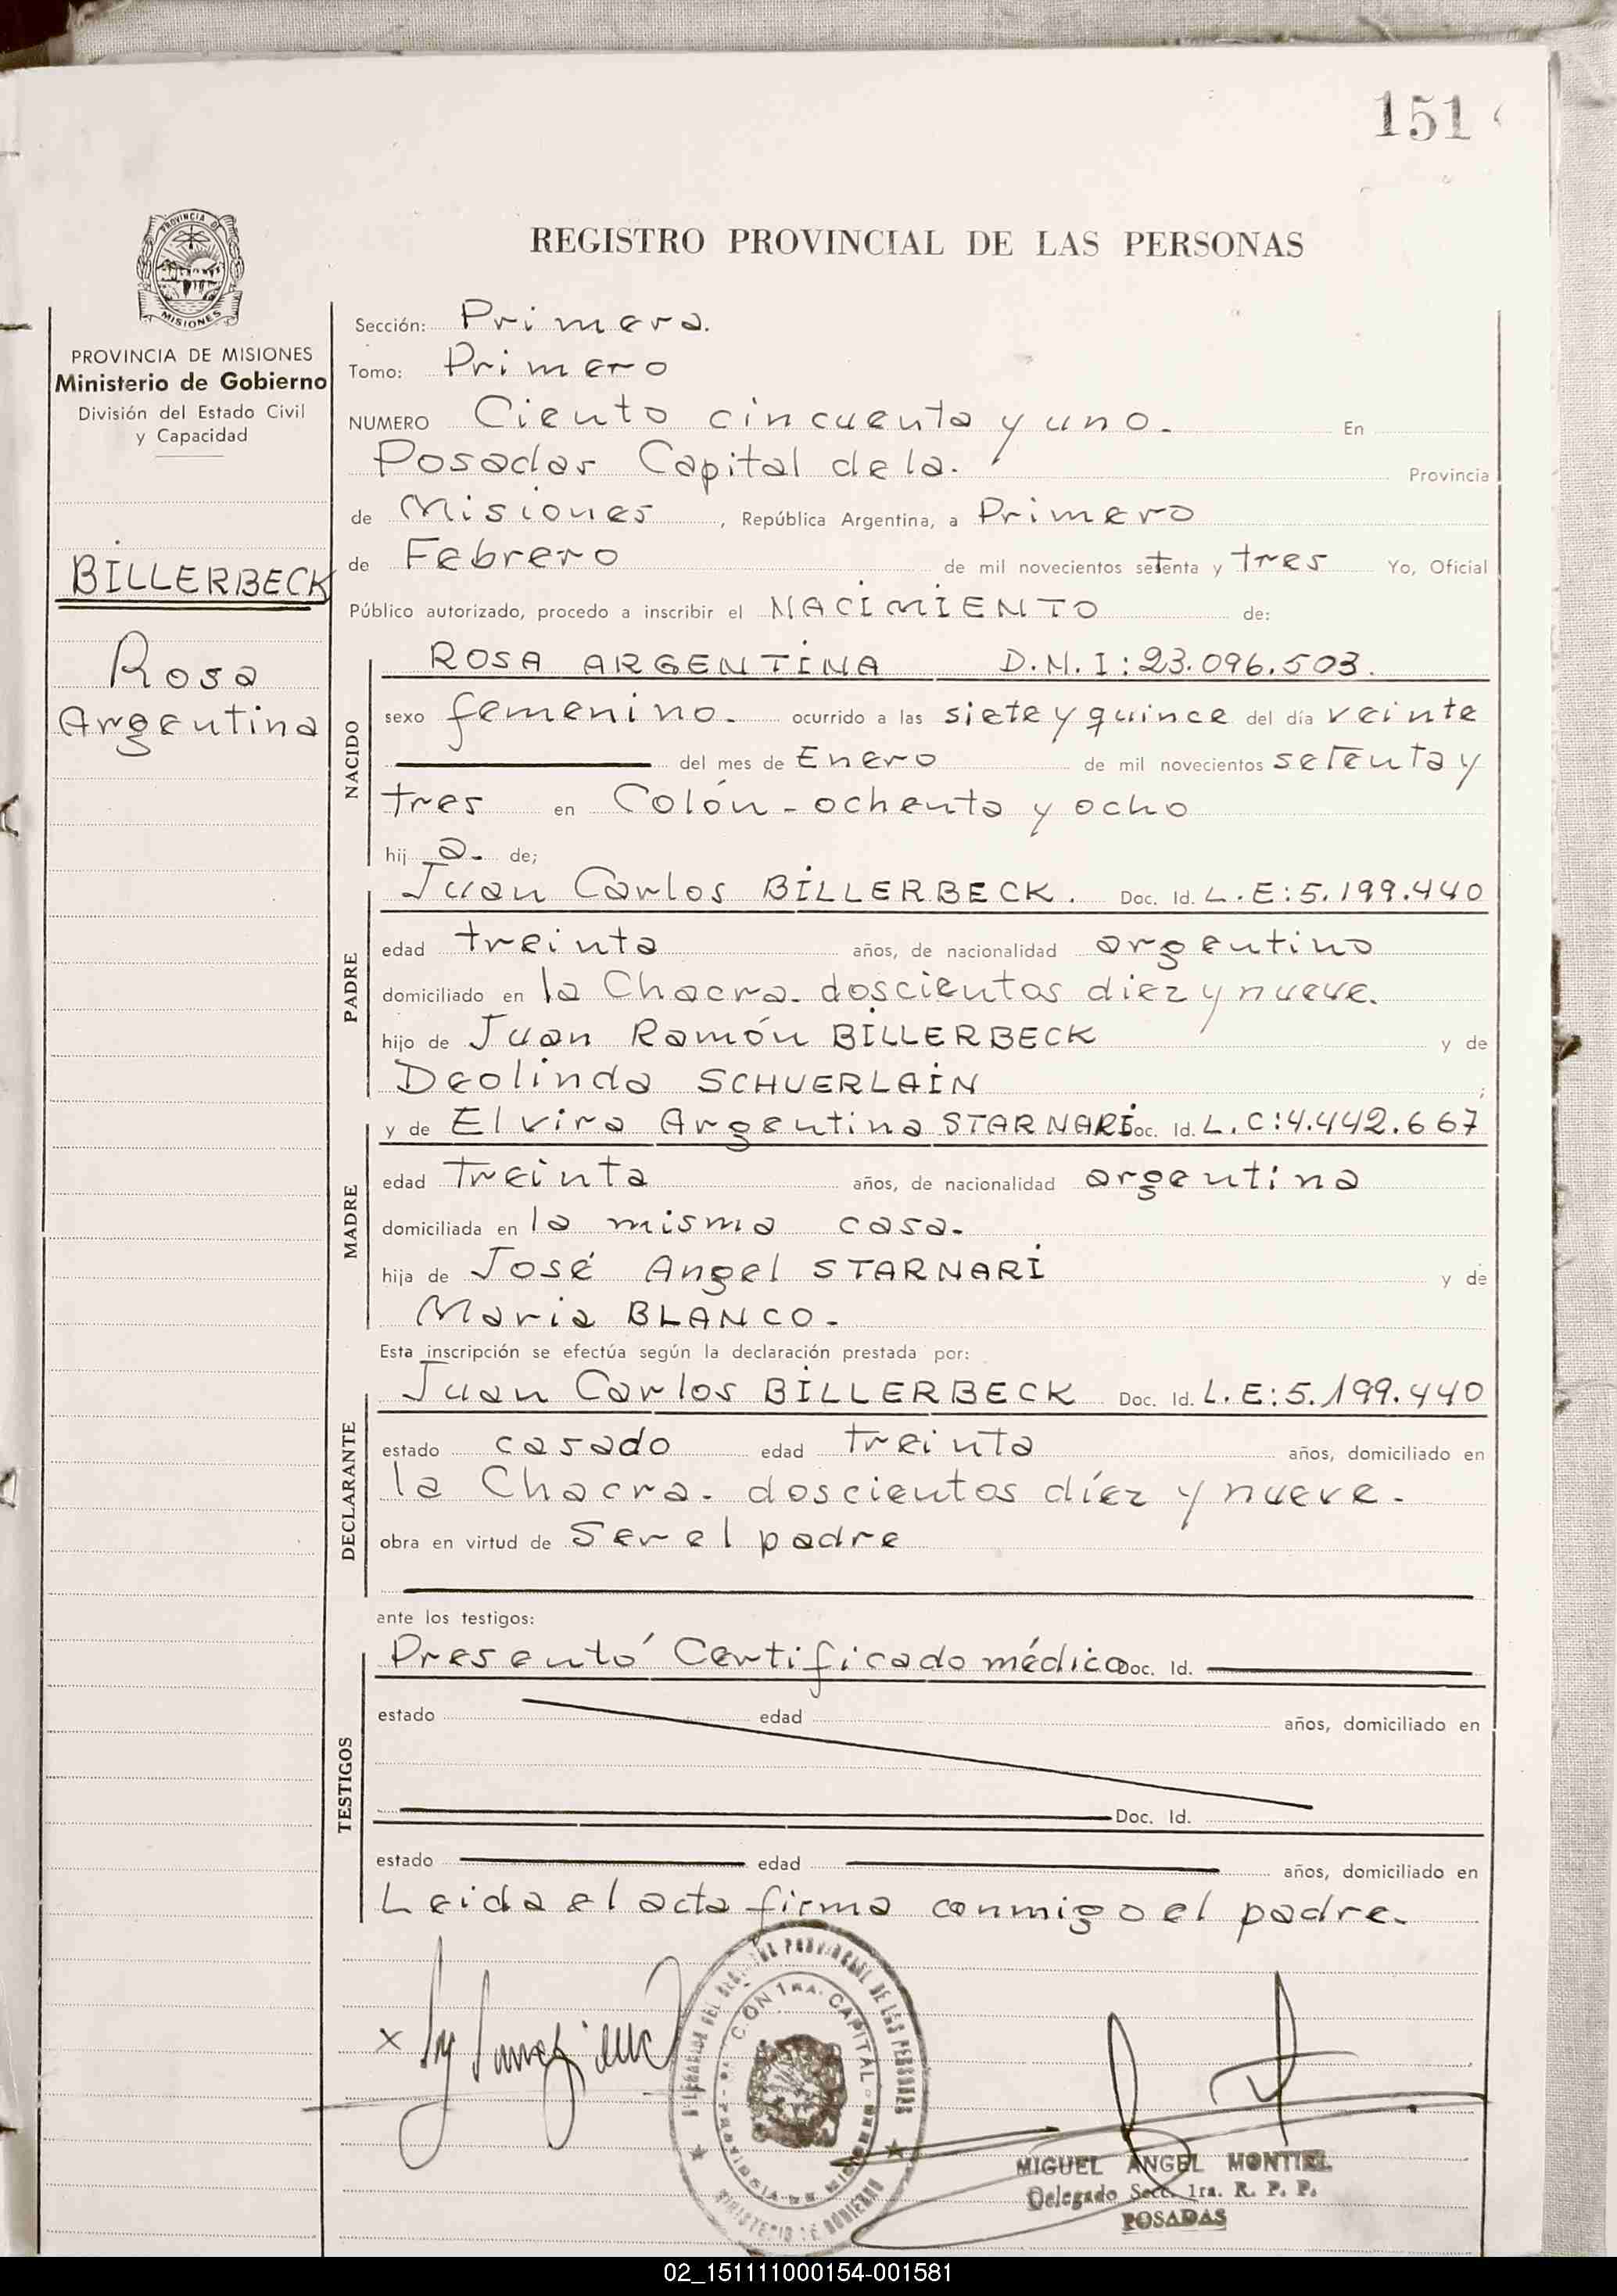 151
REGISTRO PROVINCIAL DE LAS PERSONAS
PROVINCIA DE MISIONES
PROVINCIA DE MISIONES
Ministerio de Gobierno
División del Estado Civil
y Capacidad
BILLERBECK
Rosa
Argentina
Sección: Primera.
Tomo: Primero
NUMERO Ciento cincuenta y uno. En
Posadas Capital de la. Provincia
de Misiones, República Argentina, a Primero
de Febrero de mil novecientos setenta y tres Yo, Oficial
Público autorizado, procedo a inscribir el NACIMIENTO de:
NACIDO
ROSA ARGENTINA D.N.I: 23.096.503.
sexo femenino. ocurrido a las siete y quince del día veinte
del mes de Enero de mil novecientos setenta y
tres en Colón - ochenta y ocho
hij a. de;
PADRE
Juan Carlos BILLERBECK. Doc. Id. L.E: 5.199.440
edad treinta años, de nacionalidad argentino
domiciliado en la Chacra. doscientos diez y nueve.
hijo de Juan Ramón BILLERBECK y de
Deolinda SCHUERLAIN ;
MADRE
y de Elvira Argentina STARNARI Doc. Id. L.C: 4.442.667
edad treinta años, de nacionalidad argentina
domiciliada en la misma casa.
hija de José Angel STARNARI y de
Maria BLANCO.
Esta inscripción se efectúa según la declaración prestada por:
DECLARANTE
Juan Carlos BILLERBECK Doc. Id. L.E: 5.199.440
estado casado edad treinta años, domiciliado en
la Chacra. doscientos díez y nueve.
obra en virtud de Ser el padre
ante los testigos:
TESTIGOS
Presentó Certificado médico Doc. Id.
estado edad años, domiciliado en
Doc. Id.
estado edad años, domiciliado en
Leida el acta firma conmigo el padre.
x
DEL REGISTRO PROVINCIAL DE LAS PERSONAS
CION 1RA. CAPITAL
PROVINCIA DE MISIONES
MINISTERIO DE GOBIERNO
MIGUEL ANGEL MONTIEL
Delegado Secc. 1ra. R. P. P.
POSADAS
02_151111000154-001581